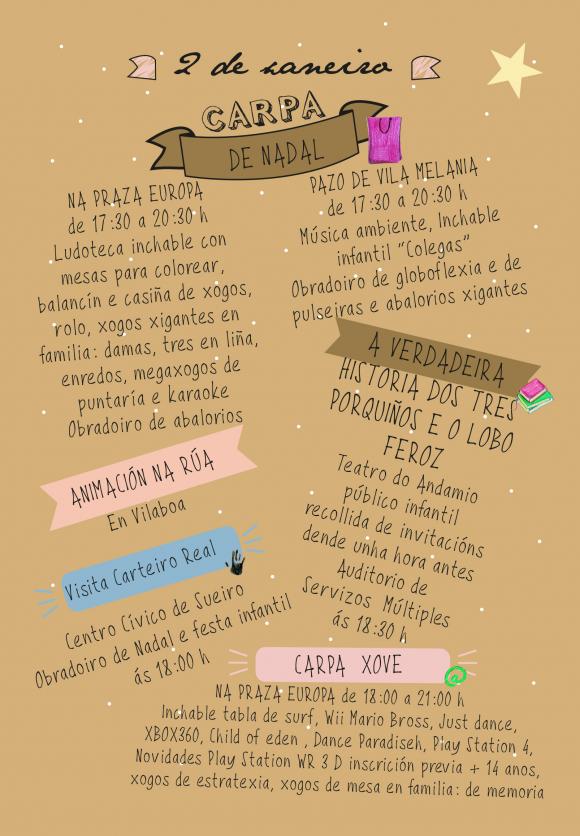 2 de xaneiro
CARPA
DE NADAL
NA PRAZA EUROPA
de 17:30 a 20:30 h
Ludoteca inchable con
mesas para colorear,
balancín e casiña de xogos,
rolo, xogos xigantes en
familia: damas, tres en liña,
enredos, megaxogos de
puntaría e karaoke
Obradoiro de abalorios
PAZO DE VILA MELANIA
de 17:30 a 20:30 h
Música ambiente, Inchable
infantil "Colegas"
Obradoiro de globoflexia e de
pulseiras e abalorios xigantes
ANIMACIÓN NA RÚA
En Vilaboa
Visita Carteiro Real
Centro Cívico de Sueiro
Obradoiro de Nadal e festa infantil
ás 18:00 h
A VERDADEIRA
HISTORIA DOS TRES
PORQUIÑOS E O LOBO
FEROZ
Teatro do Andamio
público infantil
recollida de invitacións
dende unha hora antes
Auditorio de
Servizos Múltiples
ás 18:30 h
CARPA XOVE
@
NA PRAZA EUROPA de 18:00 a 21:00 h
Inchable tabla de surf, Wii Mario Bross, Just dance,
XBOX360, Child of eden , Dance Paradiseh, Play Station 4,
Novidades Play Station WR 3 D inscrición previa + 14 anos,
xogos de estratexia, xogos de mesa en familia: de memoria